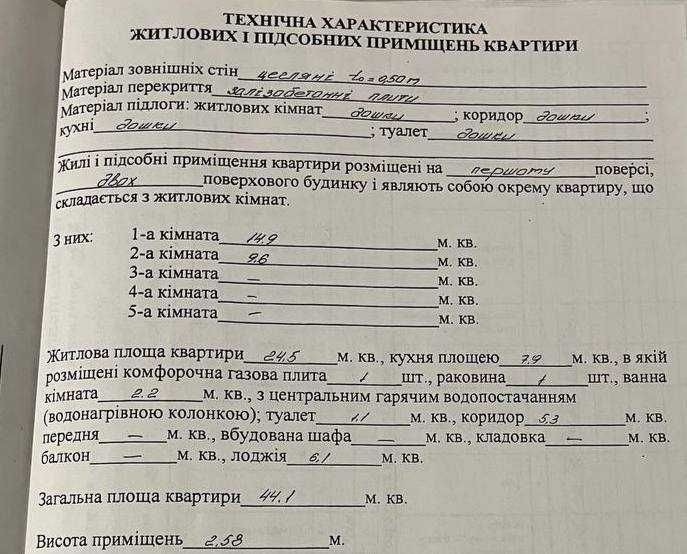 ТЕХНІЧНА ХАРАКТЕРИСТИКА
ЖИТЛОВИХ І ПІДСОБНИХ ПРИМІЩЕНЬ КВАРТИРИ
Матеріал зовнішніх стін цегляні to = 0,50 м
Матеріал перекриття залізобетонні плити
Матеріал підлоги: житлових кімнат дошки ; коридор дошки ;
кухні дошки ; туалет дошки
Жилі і підсобні приміщення квартири розміщені на першому поверсі,
двох поверхового будинку і являють собою окрему квартиру, що
складається з житлових кімнат.
З них: 1-а кімната 14.9 м. кв.
2-а кімната 9.6 м. кв.
3-а кімната — м. кв.
4-а кімната — м. кв.
5-а кімната — м. кв.
Житлова площа квартири 24,5 м. кв., кухня площею 7.9 м. кв., в якій
розміщені комфорочна газова плита 1 шт., раковина 1 шт., ванна
кімната 2.2 м. кв., з центральним гарячим водопостачанням
(водонагрівною колонкою); туалет 1.1 м. кв., коридор 5.3 м. кв.
передня — м. кв., вбудована шафа — м. кв., кладовка — м. кв.
балкон — м. кв., лоджія 6,1 м. кв.
Загальна площа квартири 44.1 м. кв.
Висота приміщень 2,58 м.